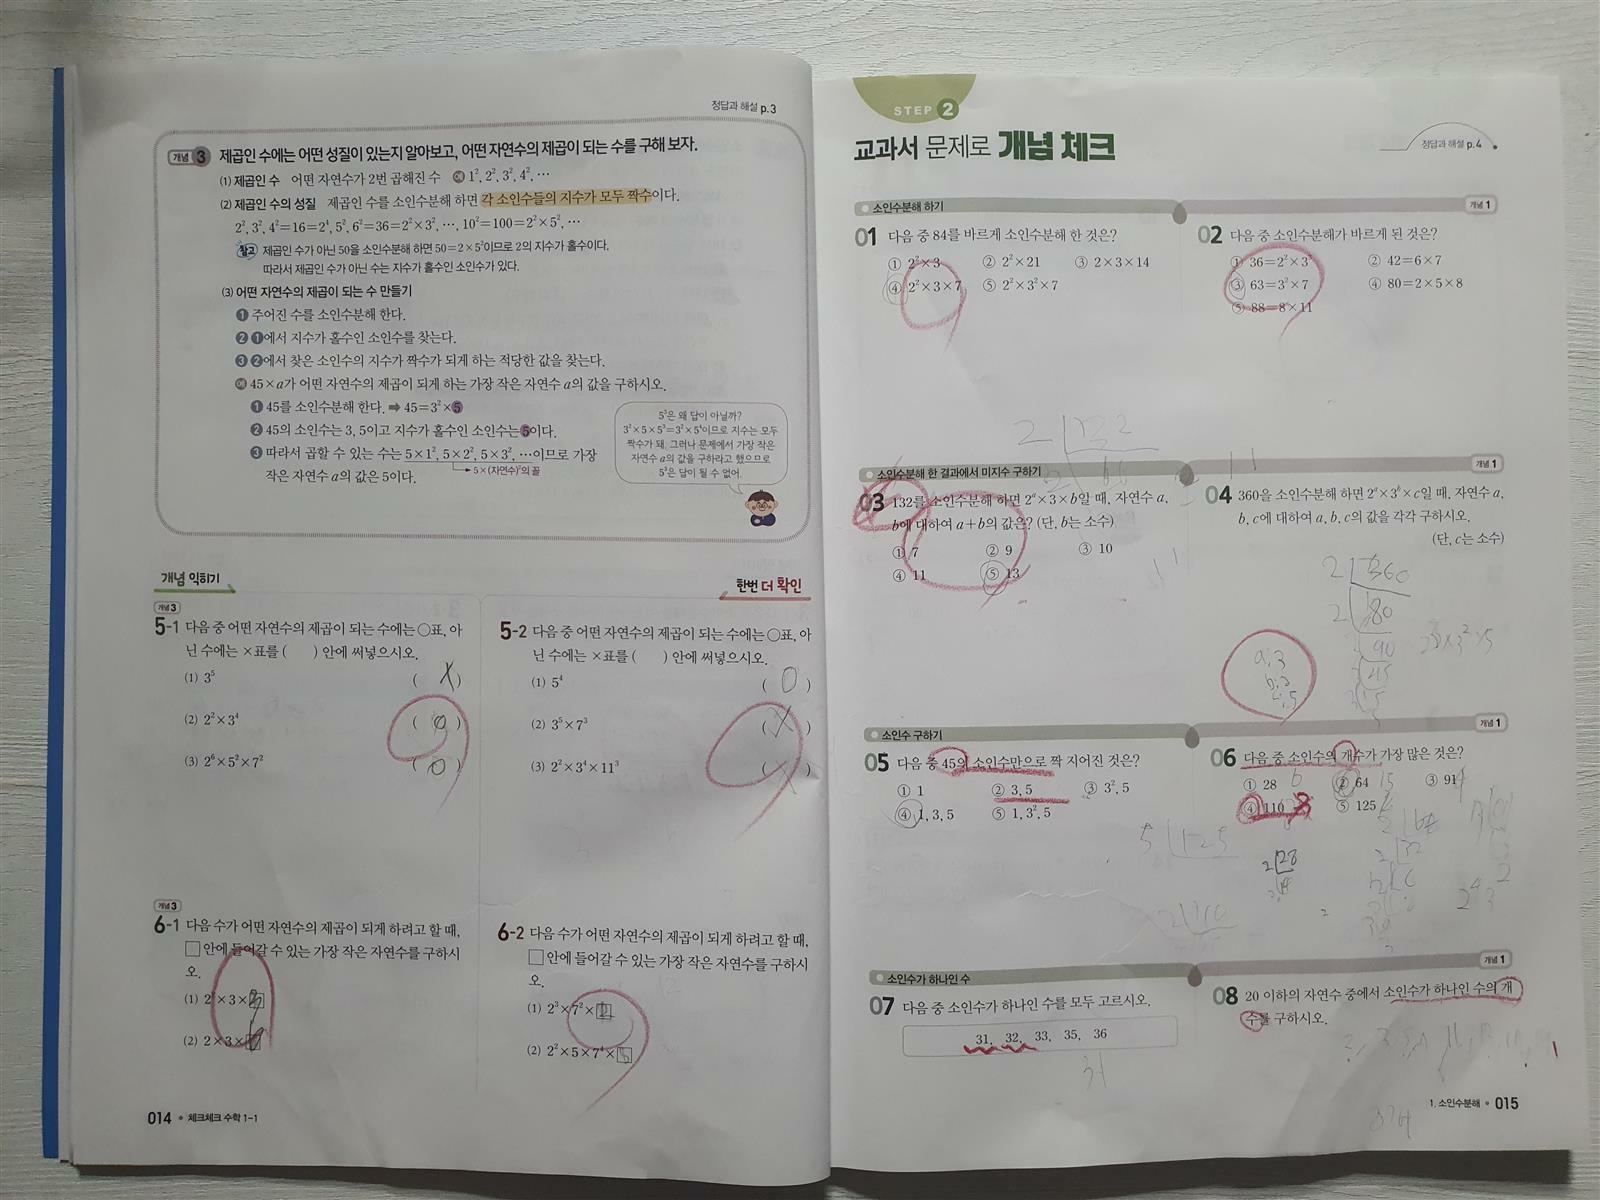 정답과 해설 p.3
개념 3 제곱인 수에는 어떤 성질이 있는지 알아보고, 어떤 자연수의 제곱이 되는 수를 구해 보자.
(1) 제곱인 수 어떤 자연수가 2번 곱해진 수 예 1², 2², 3², 4², …
(2) 제곱인 수의 성질 제곱인 수를 소인수분해 하면 각 소인수들의 지수가 모두 짝수이다.
2², 3², 4²=16=2⁴, 5², 6²=36=2²×3², …, 10²=100=2²×5², …
참고 제곱인 수가 아닌 50을 소인수분해 하면 50=2×5²이므로 2의 지수가 홀수이다.
따라서 제곱인 수가 아닌 수는 지수가 홀수인 소인수가 있다.
(3) 어떤 자연수의 제곱이 되는 수 만들기
1 주어진 수를 소인수분해 한다.
2 1에서 지수가 홀수인 소인수를 찾는다.
3 2에서 찾은 소인수의 지수가 짝수가 되게 하는 적당한 값을 찾는다.
예 45×a가 어떤 자연수의 제곱이 되게 하는 가장 작은 자연수 a의 값을 구하시오.
1 45를 소인수분해 한다. ➡ 45=3²×5
2 45의 소인수는 3, 5이고 지수가 홀수인 소인수는 5이다.
3 따라서 곱할 수 있는 수는 5×1², 5×2², 5×3², …이므로 가장
5×(자연수)²의 꼴
작은 자연수 a의 값은 5이다.
5³은 왜 답이 아닐까?
3²×5×5³=3²×5⁴이므로 지수는 모두
짝수가 돼. 그러나 문제에서 가장 작은
자연수 a의 값을 구하라고 했으므로
5³은 답이 될 수 없어.
개념 익히기
한번 더 확인
개념 3
5-1 다음 중 어떤 자연수의 제곱이 되는 수에는 ○표, 아
닌 수에는 ×표를 ( ) 안에 써넣으시오.
(1) 3⁵ ( X )
(2) 2²×3⁴ ( O )
(3) 2⁶×5²×7² ( O )
5-2 다음 중 어떤 자연수의 제곱이 되는 수에는 ○표, 아
닌 수에는 ×표를 ( ) 안에 써넣으시오.
(1) 5⁴ ( O )
(2) 3⁵×7³ ( X )
(3) 2²×3⁴×11³ ( X )
개념 3
6-1 다음 수가 어떤 자연수의 제곱이 되게 하려고 할 때,
□ 안에 들어갈 수 있는 가장 작은 자연수를 구하시
오.
(2) 2×3×
6-2 다음 수가 어떤 자연수의 제곱이 되게 하려고 할 때,
□ 안에 들어갈 수 있는 가장 작은 자연수를 구하시
오.
(1) 2³×7²×
(2) 2²×5×7⁴× 5
014 • 체크체크 수학 1-1
STEP 2
교과서 문제로 개념 체크
정답과 해설 p.4
소인수분해 하기 개념 1
01 다음 중 84를 바르게 소인수분해 한 것은?
① 2²×3 ② 2²×21 ③ 2×3×14
④ 2²×3×7 ⑤ 2²×3²×7
02 다음 중 소인수분해가 바르게 된 것은?
① 36=2²×3³ ② 42=6×7
③ 63=3²×7 ④ 80=2×5×8
⑤ 88=8×11
2 132
66
11
소인수분해 한 결과에서 미지수 구하기 개념 1
03 132를 소인수분해 하면 2ᵃ×3×b일 때, 자연수 a,
b에 대하여 a+b의 값은? (단, b는 소수)
① 7 ② 9 ③ 10
④ 11 ⑤ 13
04 360을 소인수분해 하면 2ᵃ×3ᵇ×c일 때, 자연수 a,
b, c에 대하여 a, b, c의 값을 각각 구하시오.
(단, c는 소수)
2 360
2 180
90
45
15
5
2³×3²×5
a:3
b:2
c:5
소인수 구하기 개념 1
05 다음 중 45의 소인수만으로 짝 지어진 것은?
① 1 ② 3, 5 ③ 3², 5
④ 1, 3, 5 ⑤ 1, 3², 5
06 다음 중 소인수의 개수가 가장 많은 것은?
① 28 ② 64 ③ 91
④ 110 ⑤ 125
5 125
2 28
소인수가 하나인 수 개념 1
07 다음 중 소인수가 하나인 수를 모두 고르시오.
31, 32, 33, 35, 36
31
08 20 이하의 자연수 중에서 소인수가 하나인 수의 개
수를 구하시오.
1. 소인수분해 • 015